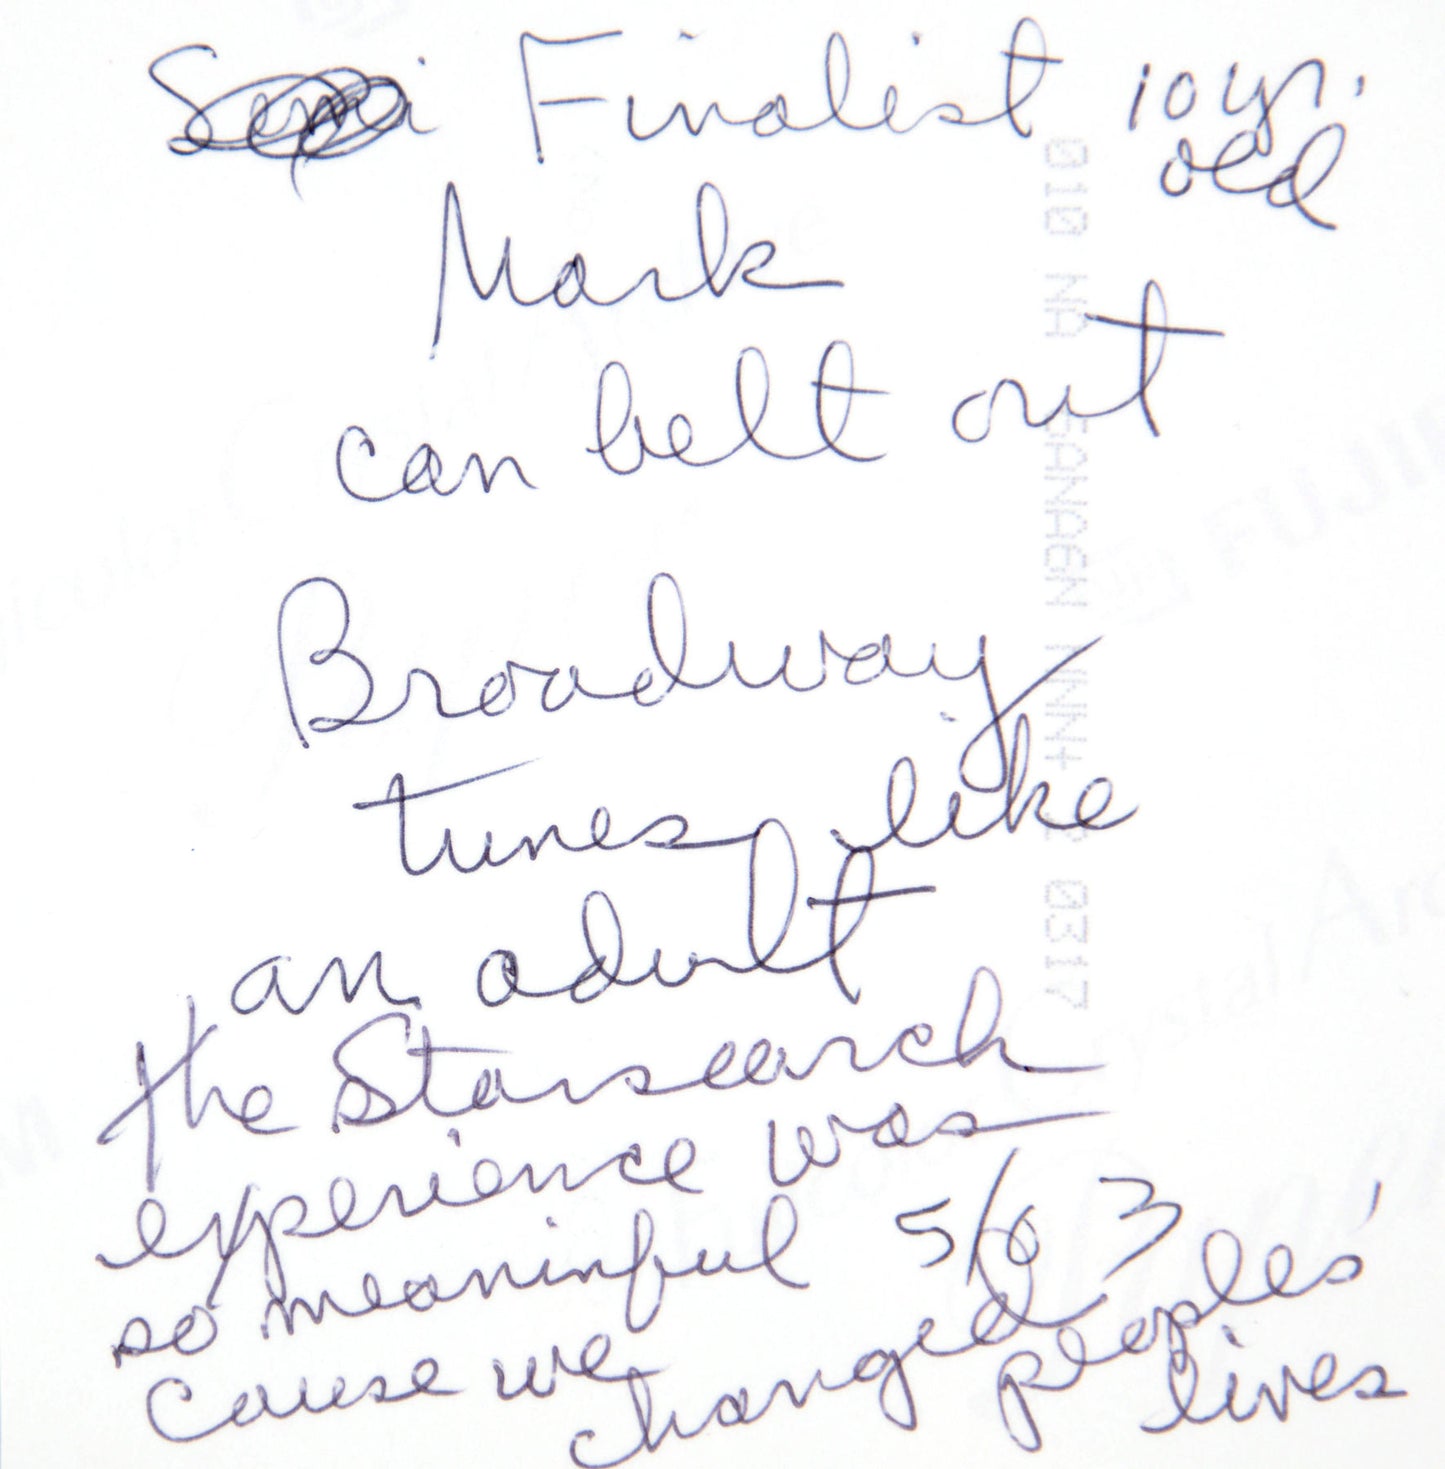 Semi Finalist 10 yr.
old
Mark
can belt out
Broadway
tunes like
an adult
the Starsearch
experience was
so meaninful 5/63
cause we changed peoples'
lives
0100 NA NNN+ 2 0317
FUJI